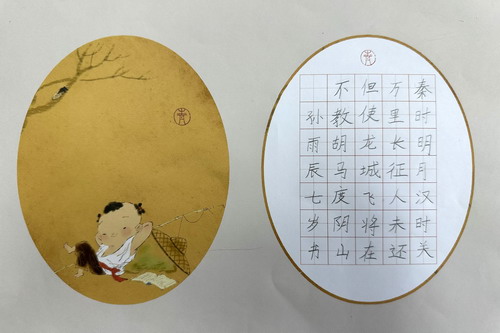 秦时明月汉时关
万里长征人未还
但使龙城飞将在
不教胡马度阴山
孙雨辰七岁书